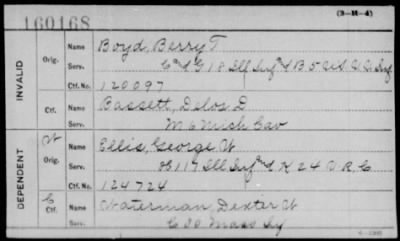 160168
(3-M-4)
INVALID
Orig.
Name Boyd, Berry T.
Serv. C and G 18 Ill Inf and B 5 U.S.
Ctf. No. 120097
Ctf.
Name Bassett, Delos D
Serv. M 6 Mich Cav
DEPENDENT
W
Orig.
Name Ellis, George W
Serv. 117 Ill Inf and K 24 V R C
Ctf. No. 124724
C
Ctf.
Name Waterman, Dexter W
Serv. C 20 Mass Inf